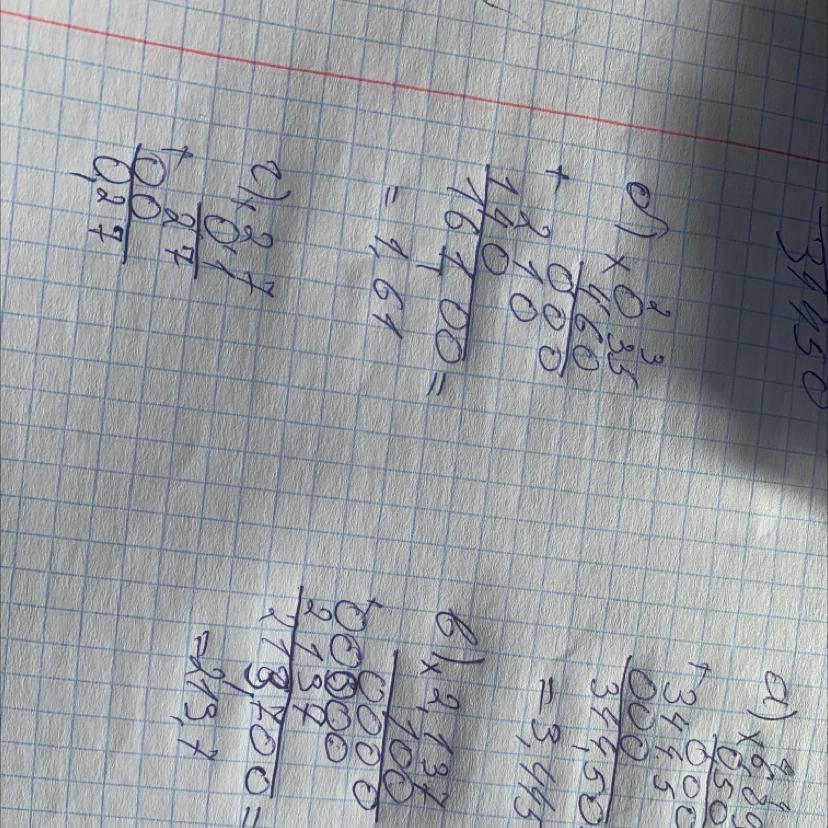 31450
а) ×6,89
0,50
000
+3445
000
344,50
=3,445
б) ×0,35
460
000
+210
140
161,00=
=1,61
в) ×2,137
100
0000
+0000
2137
213,700=
=213,7
г) ×2,7
0,1
27
+00
0,27